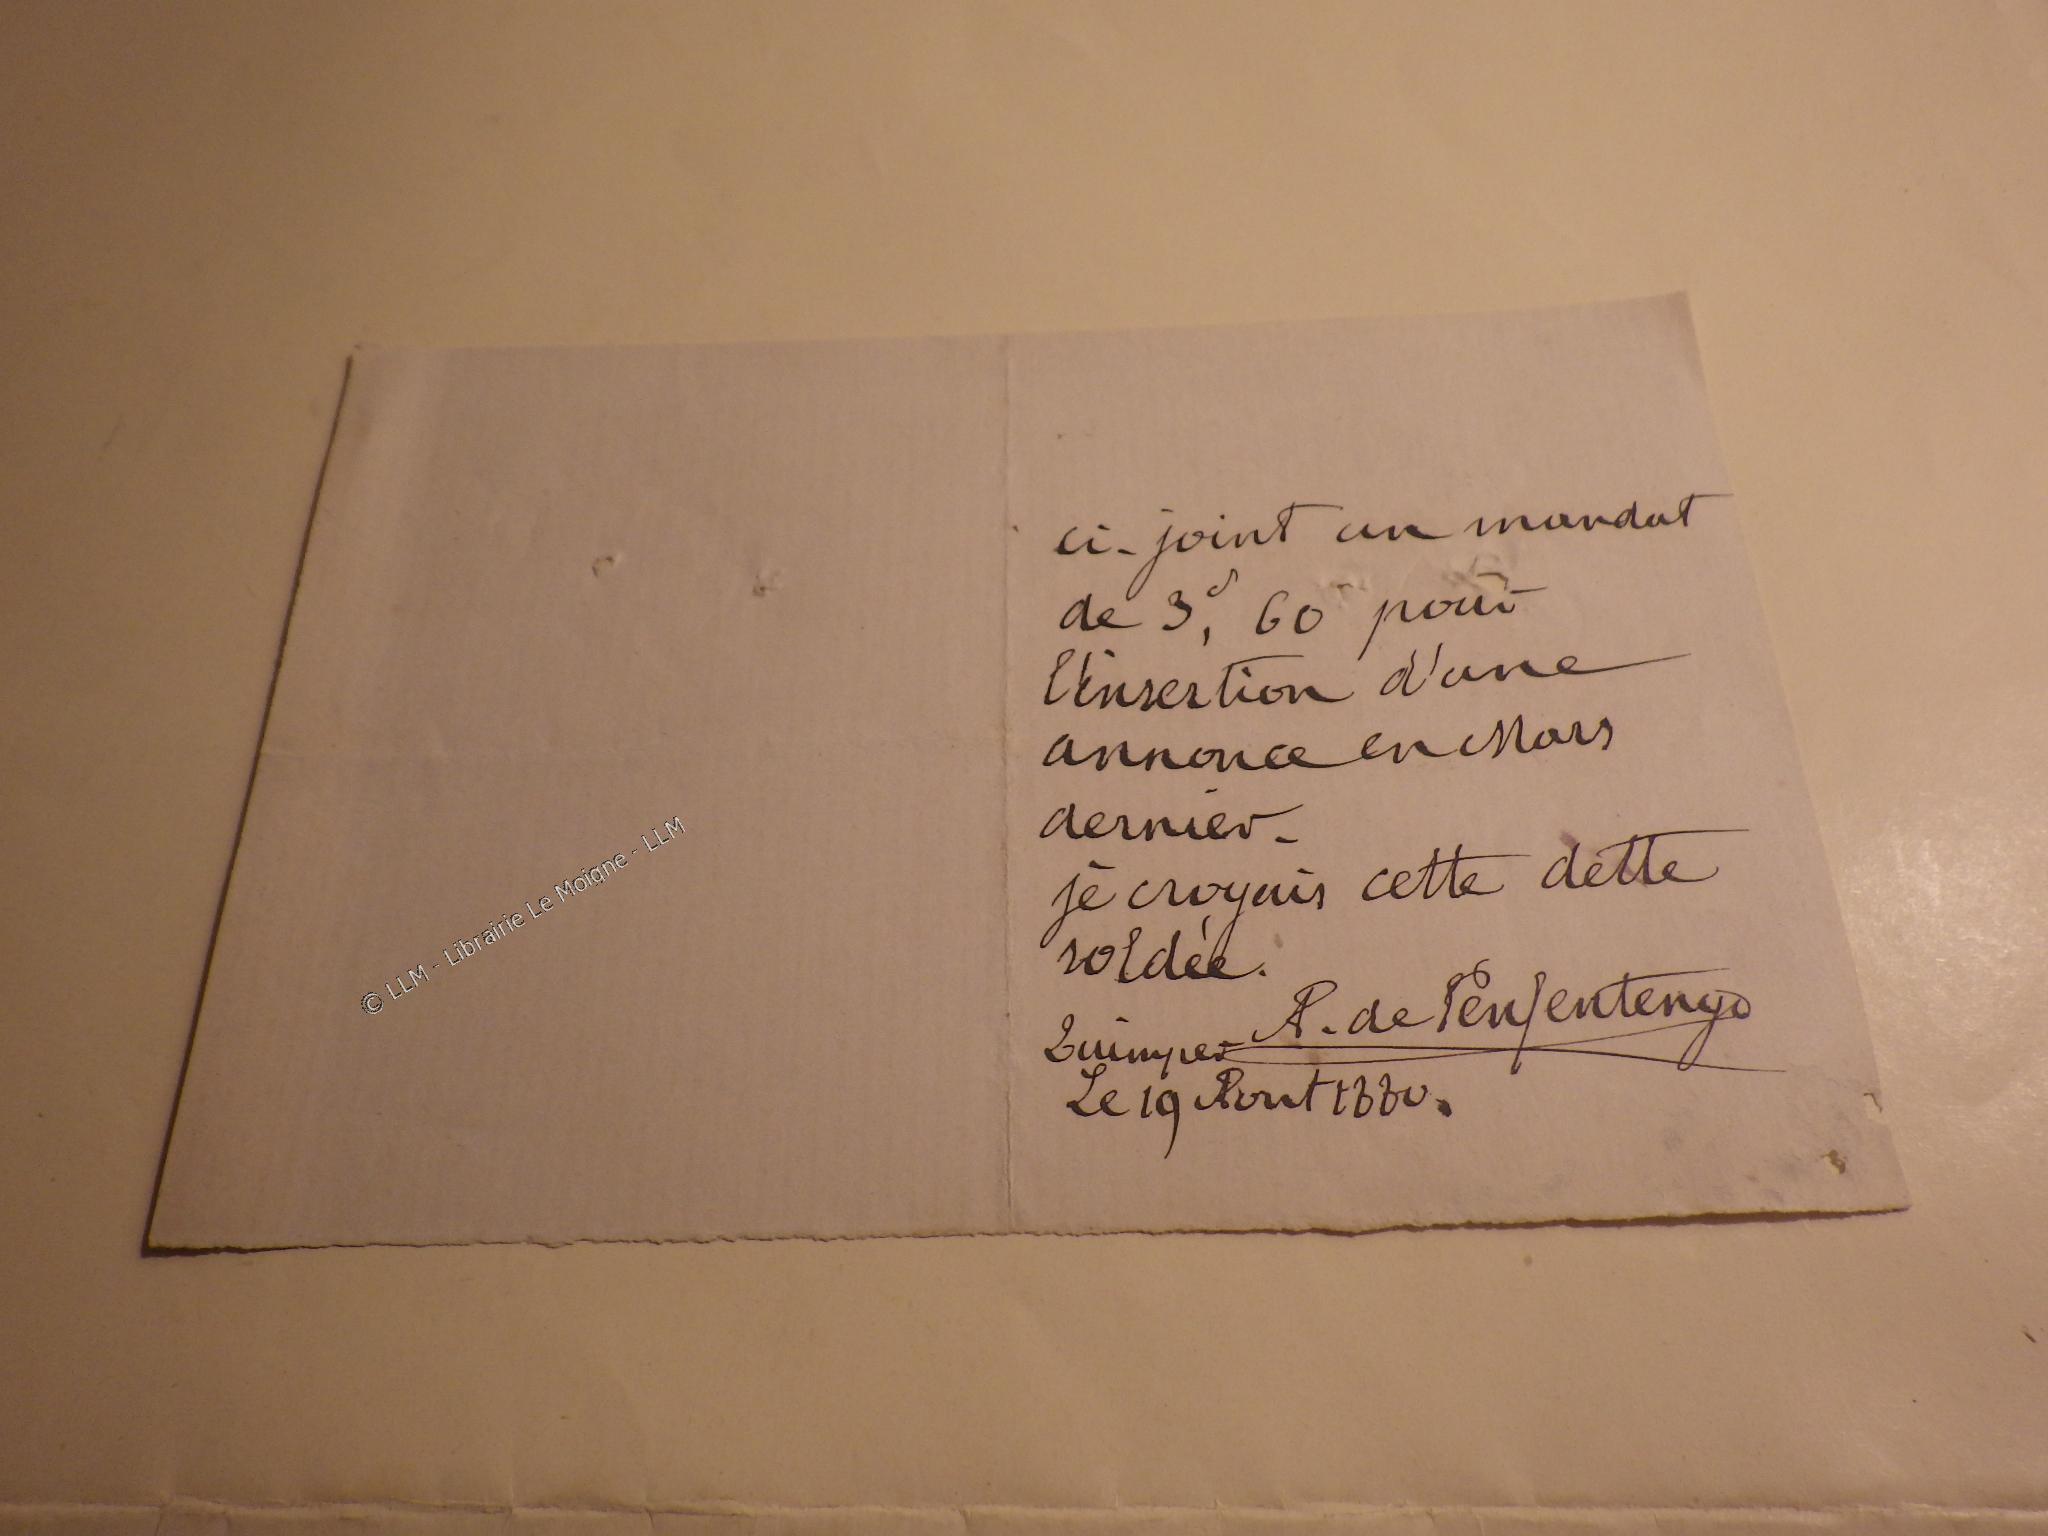 ci-joint un mandat
de 3f, 60 pour
l'insertion d'une
annonce en Mars
dernier-
je croyais cette dette
soldée.
A. de Penfentenyo
Quimper
Le 19 Aout 1880.
© LLM - Librairie Le Moigne - LLM